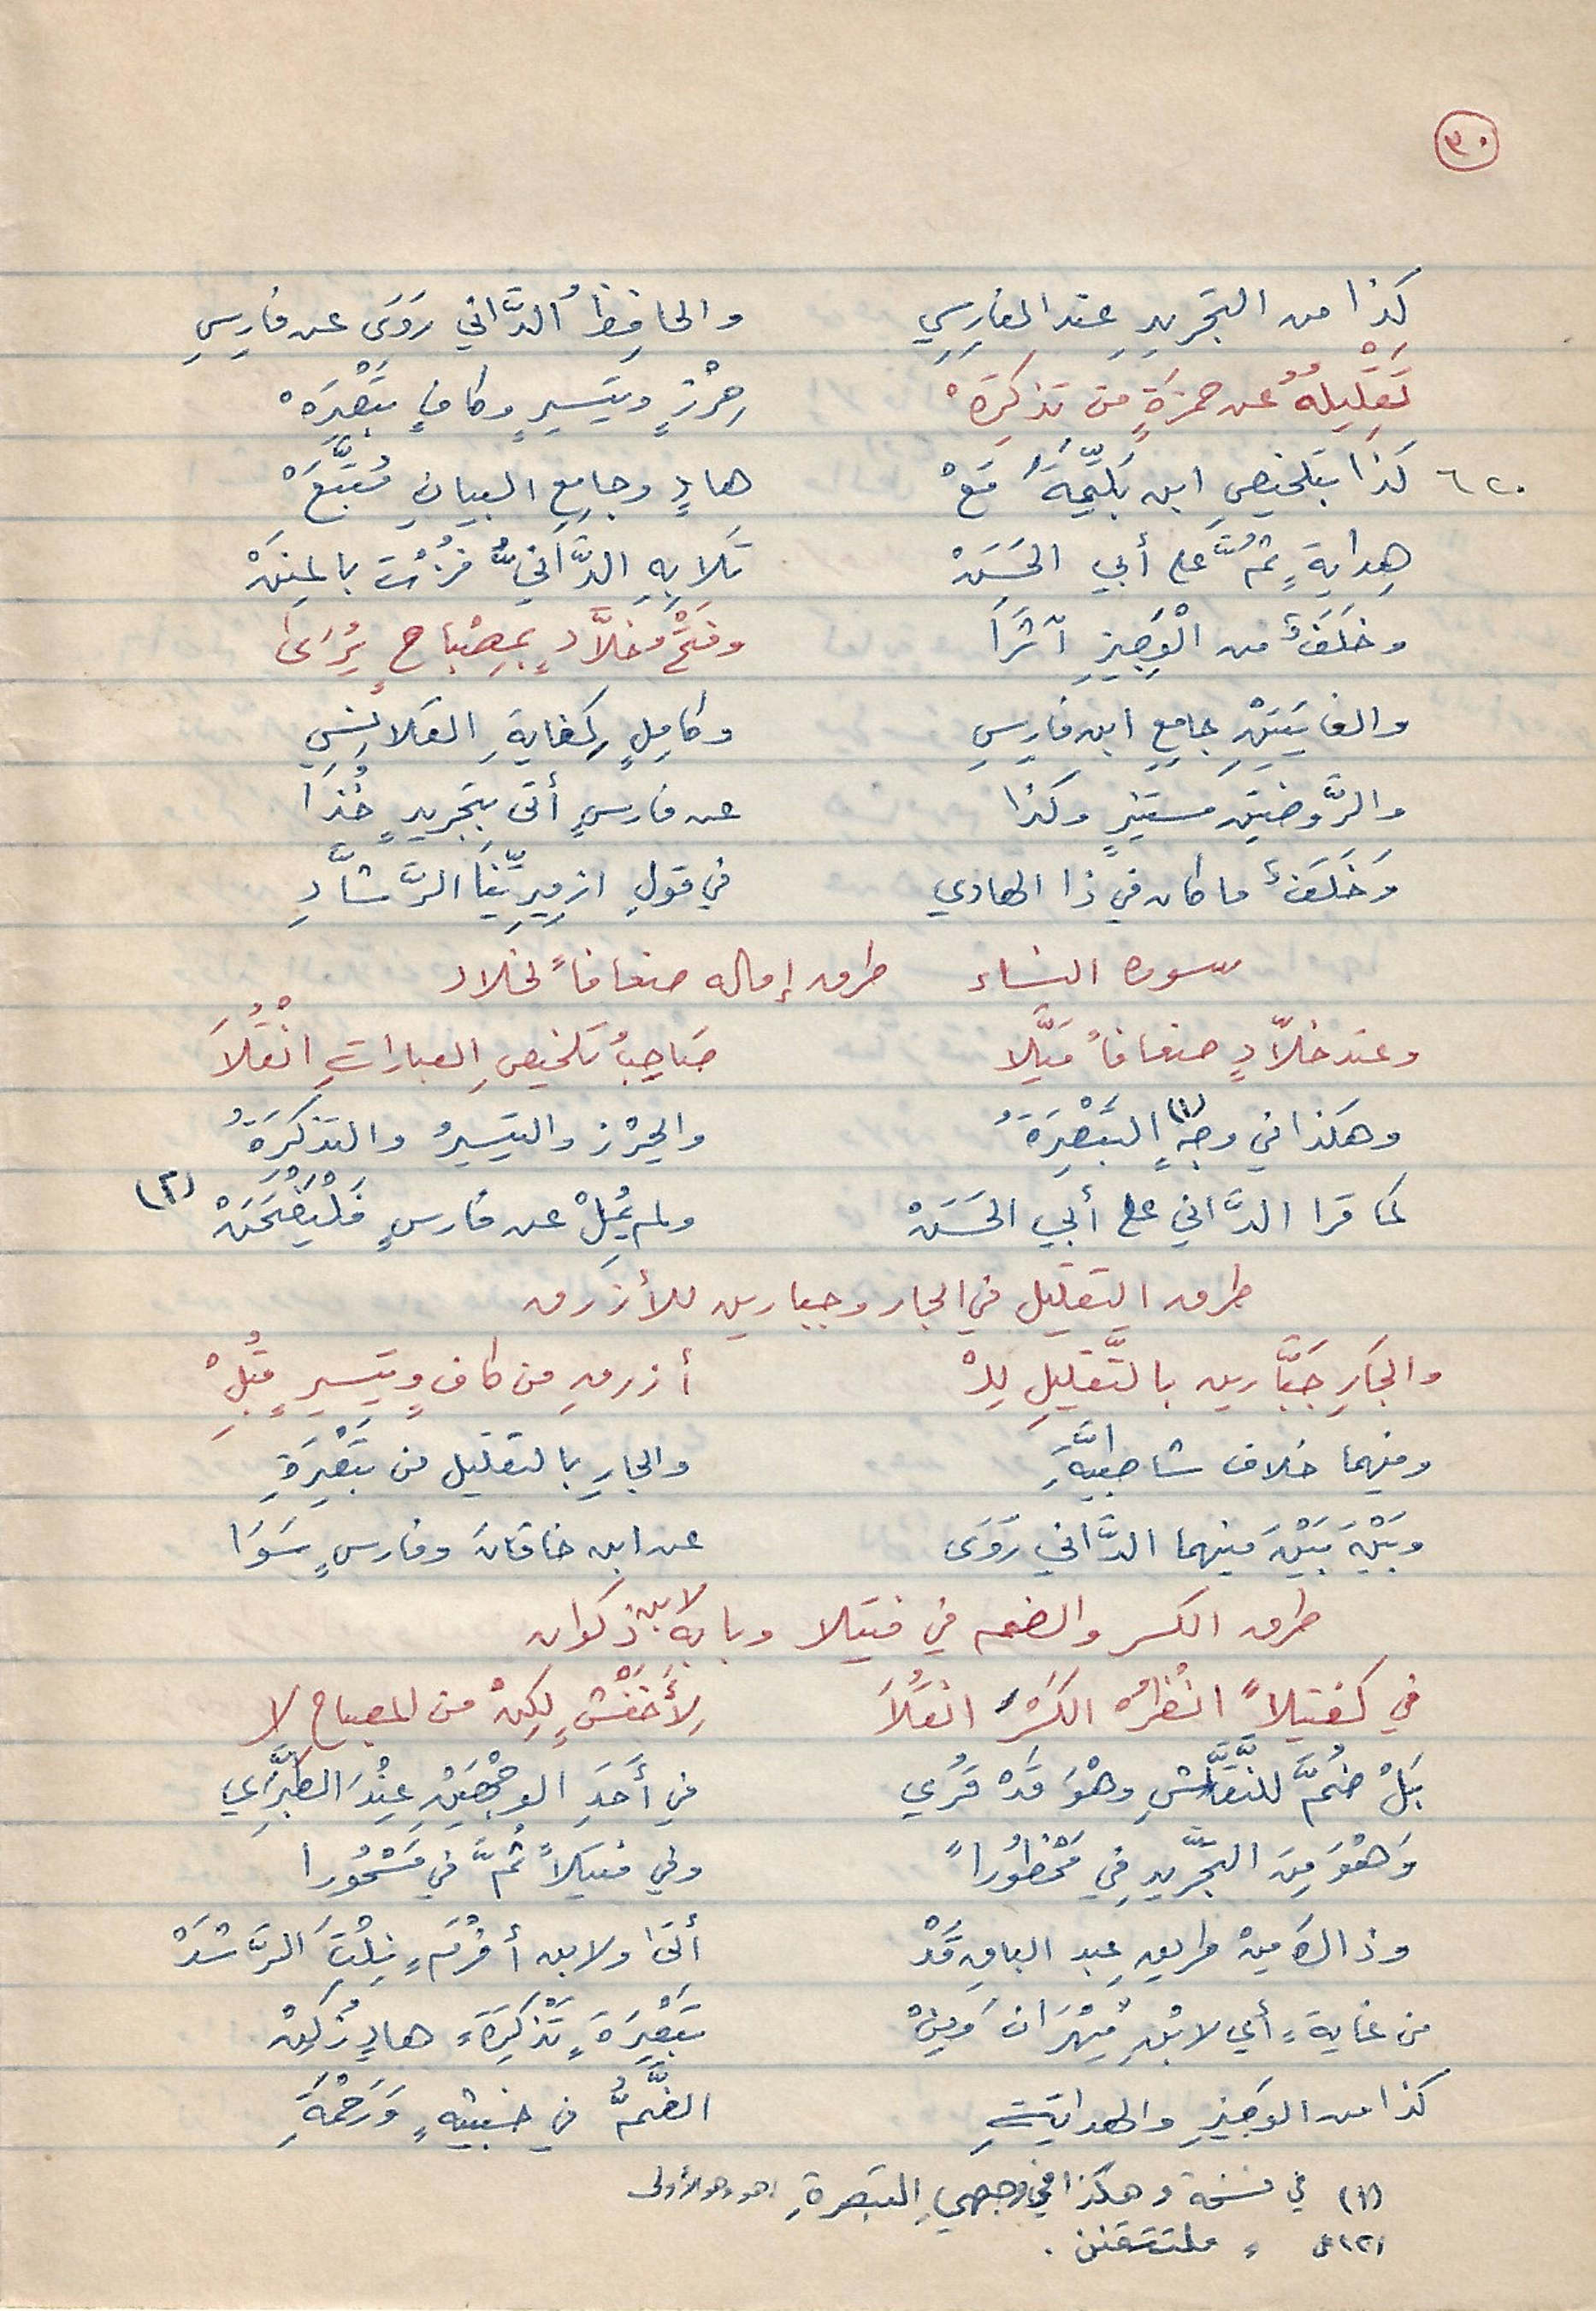 ٣٠
كَذَا من التجْريدِ عِند الفارِسِي والحافِظُ الدَّاني رَوَى عن فارِسِ
تَقْلِيلَهُ عن حمزَةٍ من تذكِرَهْ حِرْزٍ وتَيسيرٍ وكافٍ تَبْصِرَهْ
٦٢٠ كَذَا بتَلخيصِ ابن بَلِّيمَةَ مَعْ هادٍ وجامِعِ البيانِ مُتَّبَعْ
هِدايةٍ ثمَّ على أبي الحَسَنْ تَلا بِهِ الدَّانيُّ فُزْتَ بالمِنَنْ
وخَلَفٌ من الْوَجِيزِ آثَرَا وفَتْحُ خلاَّدٍ بمِصْباحٍ يُرَى
والغايتَيْنِ جامِعِ ابن فارِسِ وكامِلٍ كِفايةِ القلانِسِي
والرَّوضتَينِ مستنيرٍ وكذا عن فارسٍ أتى بتَجريدٍ خُذَا
وَخَلَفٌ ما كان في ذا الهادي في قولِ ازمِيرِيِّنَا الرَّشَّادِ
سورة النساء طرق إمالة ضعافاً لخلاد
وعندَ خلاّدٍ ضعافاً مَيَّلا صَاحِبُ تلخيصِ العباراتِ انْقُلاَ
وهكذا في وجهٍ (١) التَّبْصِرَةُ والحِرْز والتيسيرُ والتذكِرَةُ
كما قرا الدَّاني على أبي الحَسَنْ ولم يُمِلْ عن فارسٍ فَلْيَفْتَحَنْ (٢)
طرق التقليل في الجار وجبارين للأزرق
والجَارِ جَبَّارين بالتَّقليلِ لِلْ أزرقِ من كافٍ وتيسيرٍ قُبِلْ
وفيهما خلاف شاطبيَّةِ والجارِ بالتقليل من تَبْصِرَةِ
وبَيْنَ بَيْنَ فيهما الدَّاني رَوَى عن ابن خاقانَ وفارسٍ سَوَا
طرق الكسر والضم في فتيلا وبابه لابن ذكوان
في كفتيلاً انْظُرْ الكَسْرُ انقُلاَ لِأَخْفَشٍ لكِنْ من المصباح لا
بَلْ ضُمَّ للنَّقَّاشِ وهْوَ قَدْ قُرِي في أَحَدِ الوجْهَيْنِ عِنْدَ الطَّبَرِي
وَهْوَ مِنَ التَّجْريدِ فِي مَحْظُوراً وفي فتيلاً ثُمَّ في مَسْحُورا
وذاكَ مِنْ طريقِ عبد الباقِ قَدْ أتَى ولابن أخْرَمٍ نِلْتَ الرَّشَدْ
من غايةٍ أي لابْنِ مِهْرَانَ وَمِنْ تَبْصِرَةٍ تَذْكِرَةٍ هادٍ زُكِنْ
كذا من الوجيزِ والهدايةِ الضَّمُّ في خبيثةٍ وَرَحْمَةِ
(١) في نسخة وهكذا في وجهيِ التبصرةِ اهـ وهو الأولى
(٢) في ،،